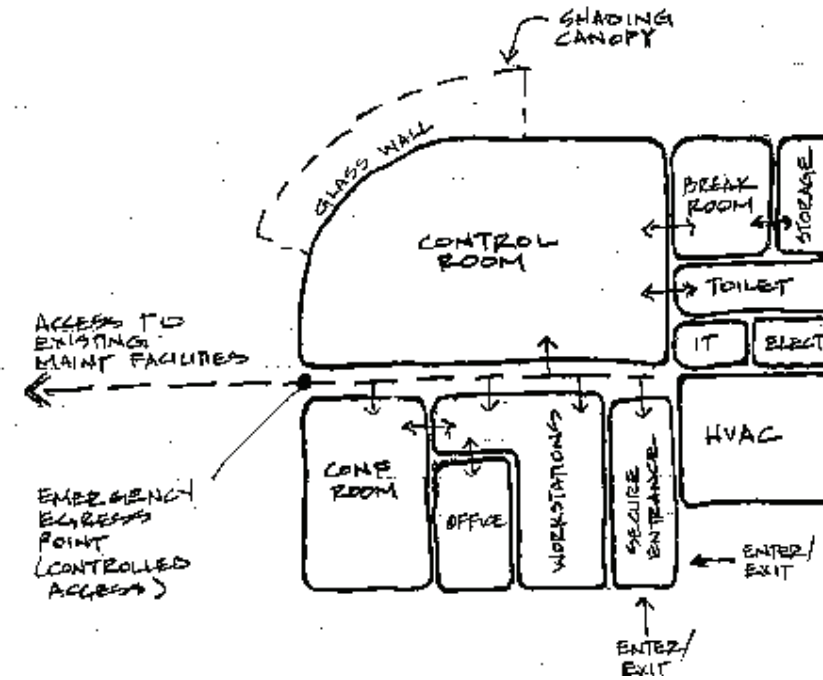 SHADING
CANOPY
GLASS WALL
BREAK
ROOM
STORAGE
CONTROL
ROOM
TOILET
ACCESS TO
EXISTING
MAINT FACILITIES
IT
ELECT
HVAC
CONF
ROOM
OFFICE
WORKSTATIONS
SECURE
ENTRANCE
EMERGENCY
EGRESS
POINT
(CONTROLLED
ACCESS)
ENTER/
EXIT
ENTER/
EXIT